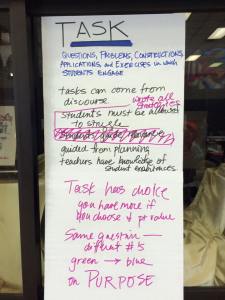 TASK
QUESTIONS, PROBLEMS, CONSTRUCTIONS,
APPLICATIONS, and EXERCISES in which
STUDENTS ENGAGE
tasks can come from
discourse
wrote all
strategies
students must be allowed
to strugle
guided from planning
teachers have knowledge of
student experiences.
Task has choice
you have more if
you choose pt value
Same question —
different #5
green → blue
on PURPOSE